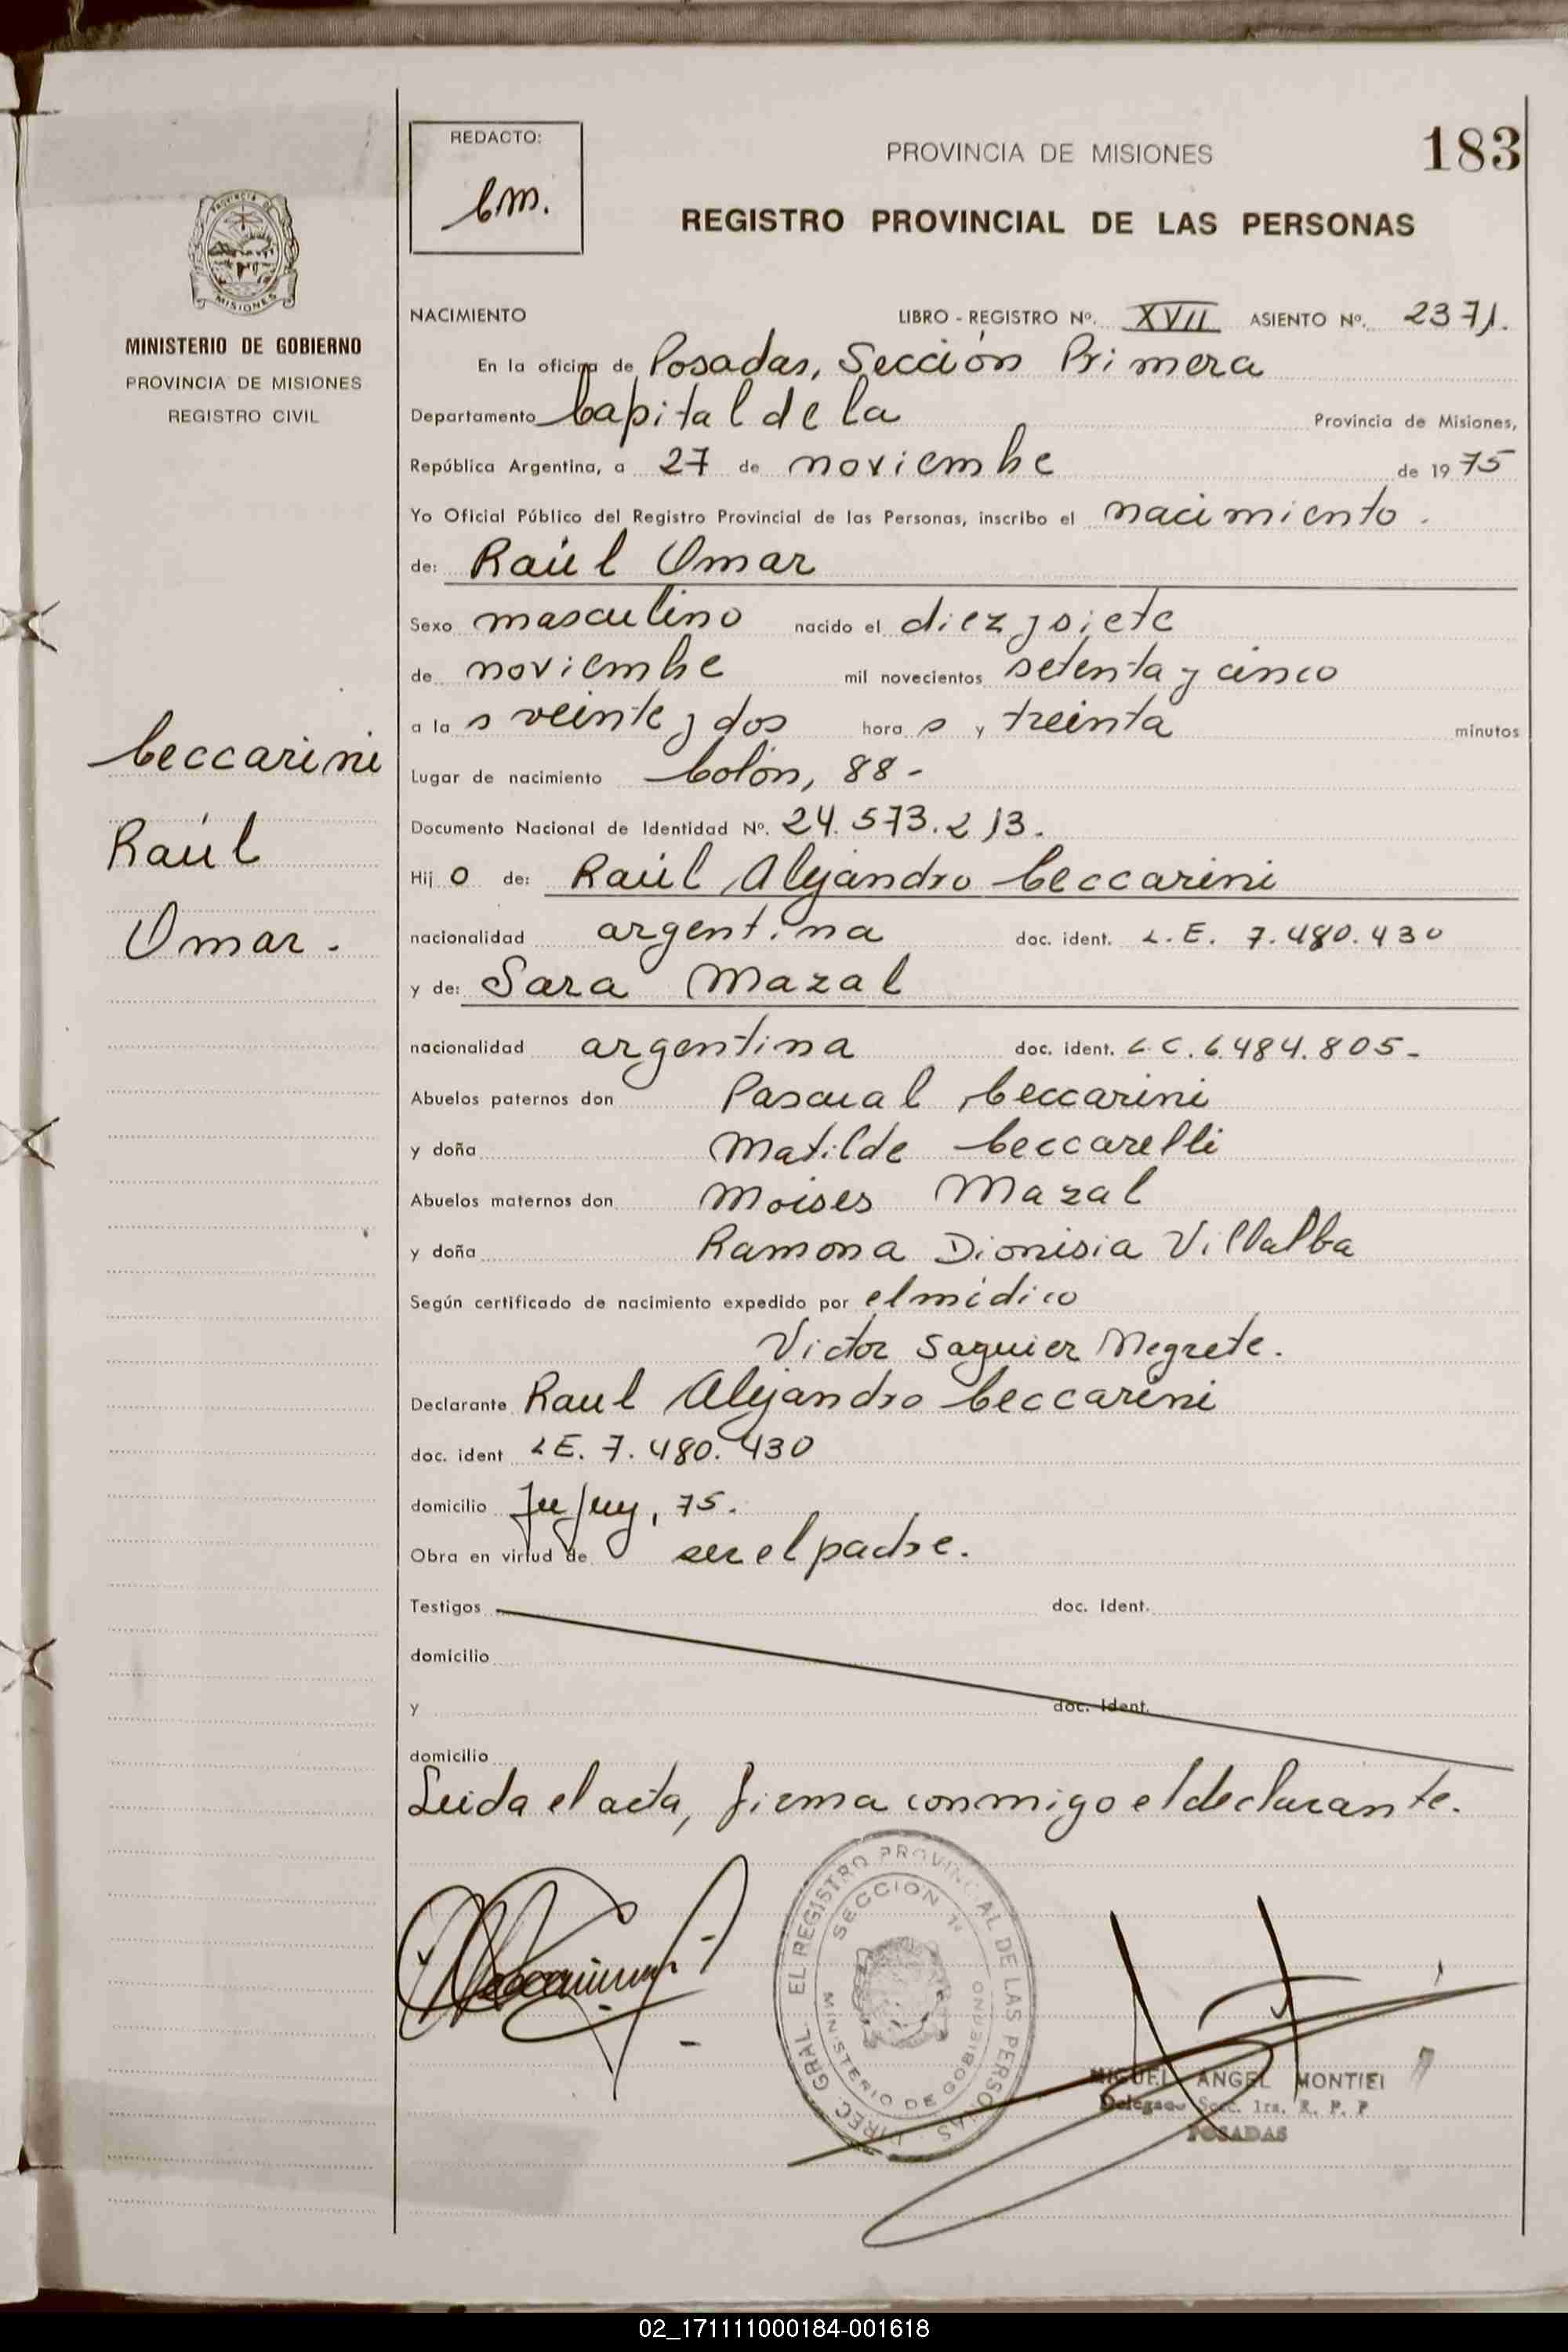 REDACTO:
Cm.
PROVINCIA DE MISIONES
183
REGISTRO PROVINCIAL DE LAS PERSONAS
PROVINCIA DE MISIONES
MINISTERIO DE GOBIERNO
PROVINCIA DE MISIONES
REGISTRO CIVIL
Ceccarini
Raúl
Omar.
NACIMIENTO LIBRO - REGISTRO Nº. XVII ASIENTO Nº. 2371.
En la oficina de Posadas, Sección Primera
Departamento Capital de la Provincia de Misiones,
República Argentina, a 27 de noviembre de 1975
Yo Oficial Público del Registro Provincial de las Personas, inscribo el nacimiento.
de: Raúl Omar
Sexo masculino nacido el diez y siete
de noviembre mil novecientos setenta y cinco
a la s veinte y dos hora s y treinta minutos
Lugar de nacimiento Colón, 88-
Documento Nacional de Identidad Nº. 24.573.213.
Hij o de: Raúl Alejandro Ceccarini
nacionalidad argentina doc. ident. L.E. 7.480.430
y de: Sara Mazal
nacionalidad argentina doc. ident. L.C. 6.484.805-
Abuelos paternos don Pascual Ceccarini
y doña Matilde Ceccarelli
Abuelos maternos don Moises Mazal
y doña Ramona Dionisia Villalba
Según certificado de nacimiento expedido por el médico
Victor Saguier Negrete.
Declarante Raul Alejandro Ceccarini
doc. ident LE. 7.480.430
domicilio Jujuy, 75.
Obra en virtud de ser el padre.
Testigos doc. Ident.
domicilio
y doc. Ident.
domicilio
Leida el acta, firma conmigo el declarante.
DIREC. GRAL. EL REGISTRO PROVINCIAL DE LAS PERSONAS
SECCION 1ª
MINISTERIO DE GOBIERNO
MIGUEL ANGEL MONTIEL
Delegado Secc. 1ra. R. P. P
POSADAS
02_171111000184-001618